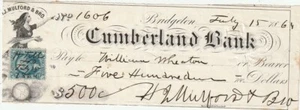 J. MULFORD & BRO.
No 1606 Bridgeton July 15 186
Cumberland Bank
Pay to William Wheton or Bearer
Five Hundred Dollars
$500 H J Mulford & Bro